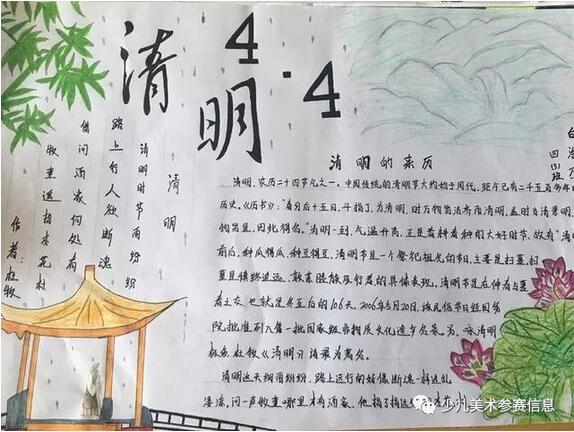 清 4·4
明
清明
清明时节雨纷纷
路上行人欲断魂
借问酒家何处有
牧童遥指杏花村
作者:杜牧
清明的来历
清明,农历二十四节气之一,中国传统的清明节大约始于周代,距今已有二千五百多年的
历史。《历书》:"春分后十五日,斗指丁,为清明,时万物皆洁齐而清明,盖时当清景明,
物出显,因此得名。"清明一到,气温升高,正是春耕春种的大好时节,故有"清明
前后,种瓜得瓜,种豆得豆。清明节是一个祭祀祖先的节日,主要是扫墓,扫
墓是慎终追远、敦亲睦族及行孝的具体表现。清明节是在仲春与暮
春之交,也就是冬至后的106天。2006年5月20日,该民俗节日经国务
院批准列入第一批国家级非物质文化遗产名录。咏清明
杜牧《清明》诗最为著名。
清明这天细雨纷纷,路上远行的好像断魂一样迷乱
凄凉。问一声牧童哪里才有酒家,他指了指远
少儿美术参赛信息